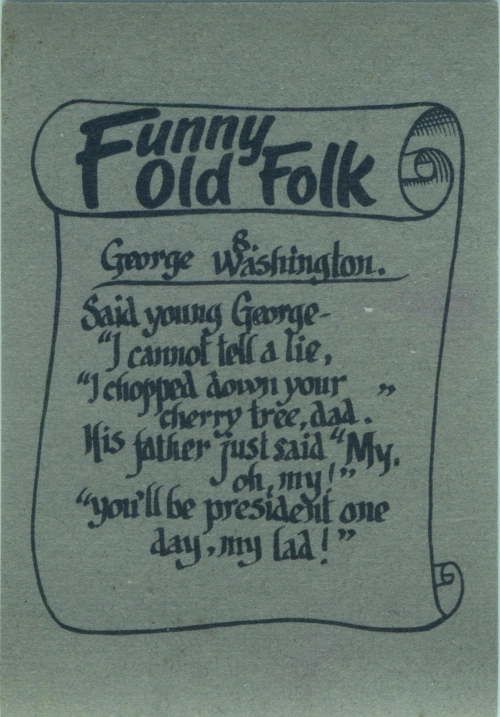 Funny
Old Folk
8.
George Washington.
Said young George-
"I cannot tell a lie,
"I chopped down your
cherry tree, dad."
His father just said "My,
oh, my!"
"you'll be president one
day, my lad!"